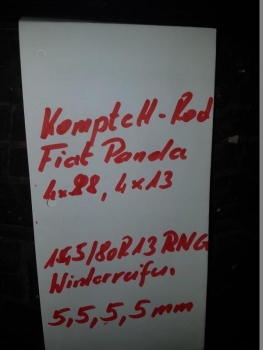 Komplett-Rad
Fiat Panda
4x98, 4x13
155/80R13 RNG
Winterreifen.
5,5,5,5 mm